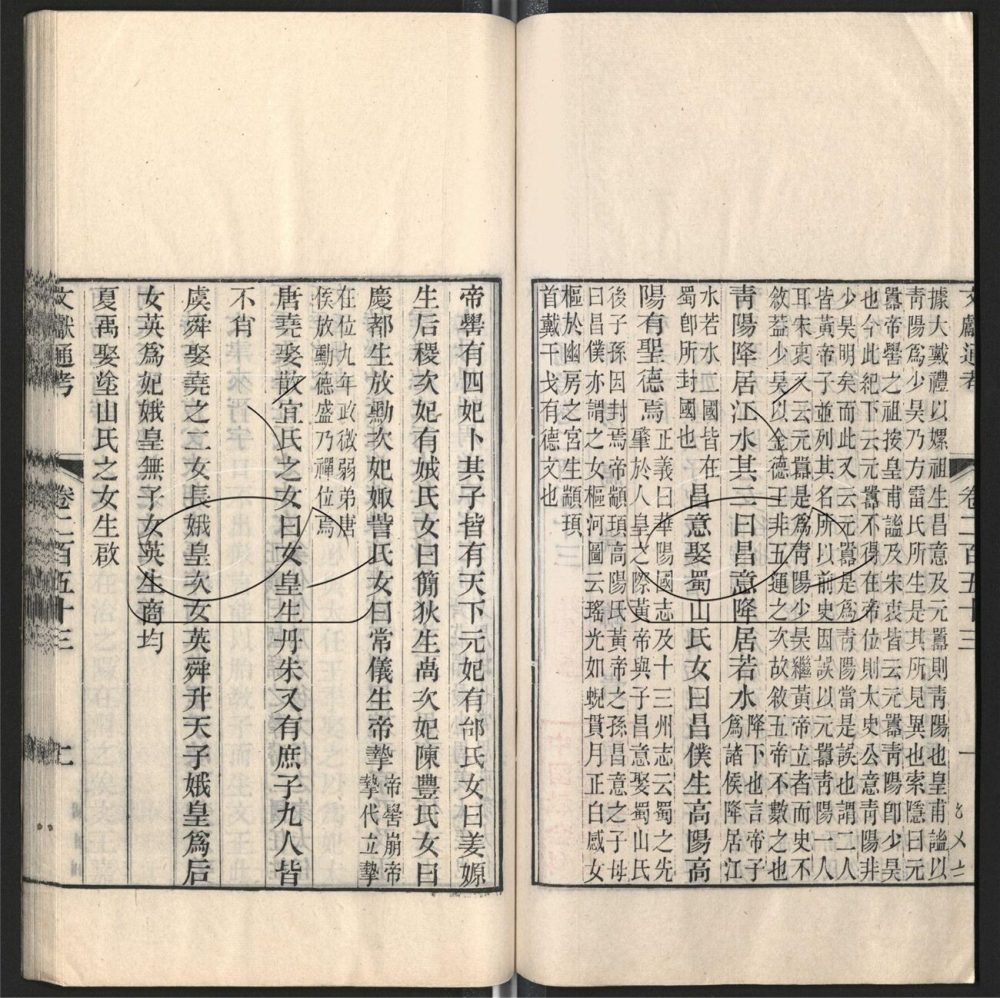 文獻通考　卷二百五十三
據大戴禮以嫘祖生昌意及元囂則靑陽也皇甫謐以
靑陽爲少昊乃方雷氏所生是其所見異也索隱曰元
囂帝嚳之祖按皇甫謐及宋衷皆云元囂靑陽卽少昊
也今此紀下云元囂不得在帝位則太史公意靑陽非
少昊明矣而此又云元囂是爲靑陽當是誤也謂二人
皆黃帝子並列其名所以前史因誤以元囂靑陽一人
耳宋衷又云元囂是爲靑陽少昊繼黃帝立者而史不
敘蓋少昊以金德王非五運之次故敘五帝不數之也
靑陽降居江水其二曰昌意降居若水
降下也言帝子
爲諸侯降居江
水若水二國皆在
蜀卽所封國也
昌意娶蜀山氏女曰昌僕生高陽高
陽有聖德焉
正義曰華陽國志及十三州志云蜀之先
肇於人皇之際黃帝與子昌意娶蜀山氏
後子孫因封焉帝顓頊高陽氏黃帝之孫昌意之子母
曰昌僕亦謂之女樞河圖云瑤光如蜺貫月正白感女
樞於幽房之宮生顓頊
首戴干戈有德文也
帝嚳有四妃卜其子皆有天下元妃有邰氏女曰姜嫄
生后稷次妃有娀氏女曰簡狄生卨次妃陳豐氏女曰
慶都生放勳次妃娵訾氏女曰常儀生帝摯
帝嚳崩帝
摯代立摯
在位九年政微弱弟唐
侯放勳德盛乃禪位焉
唐堯娶散宜氏之女曰女皇生丹朱又有庶子九人皆
不肖
虞舜娶堯之二女長娥皇次女英舜升天子娥皇爲后
女英爲妃娥皇無子女英生商均
夏禹娶塗山氏之女生啟
文獻通考　卷二百五十三